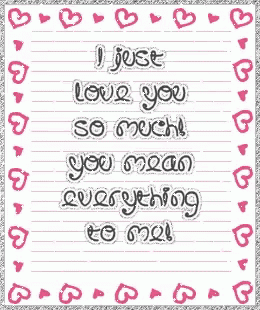 I just
love you
so much!
you mean
everything
to me!